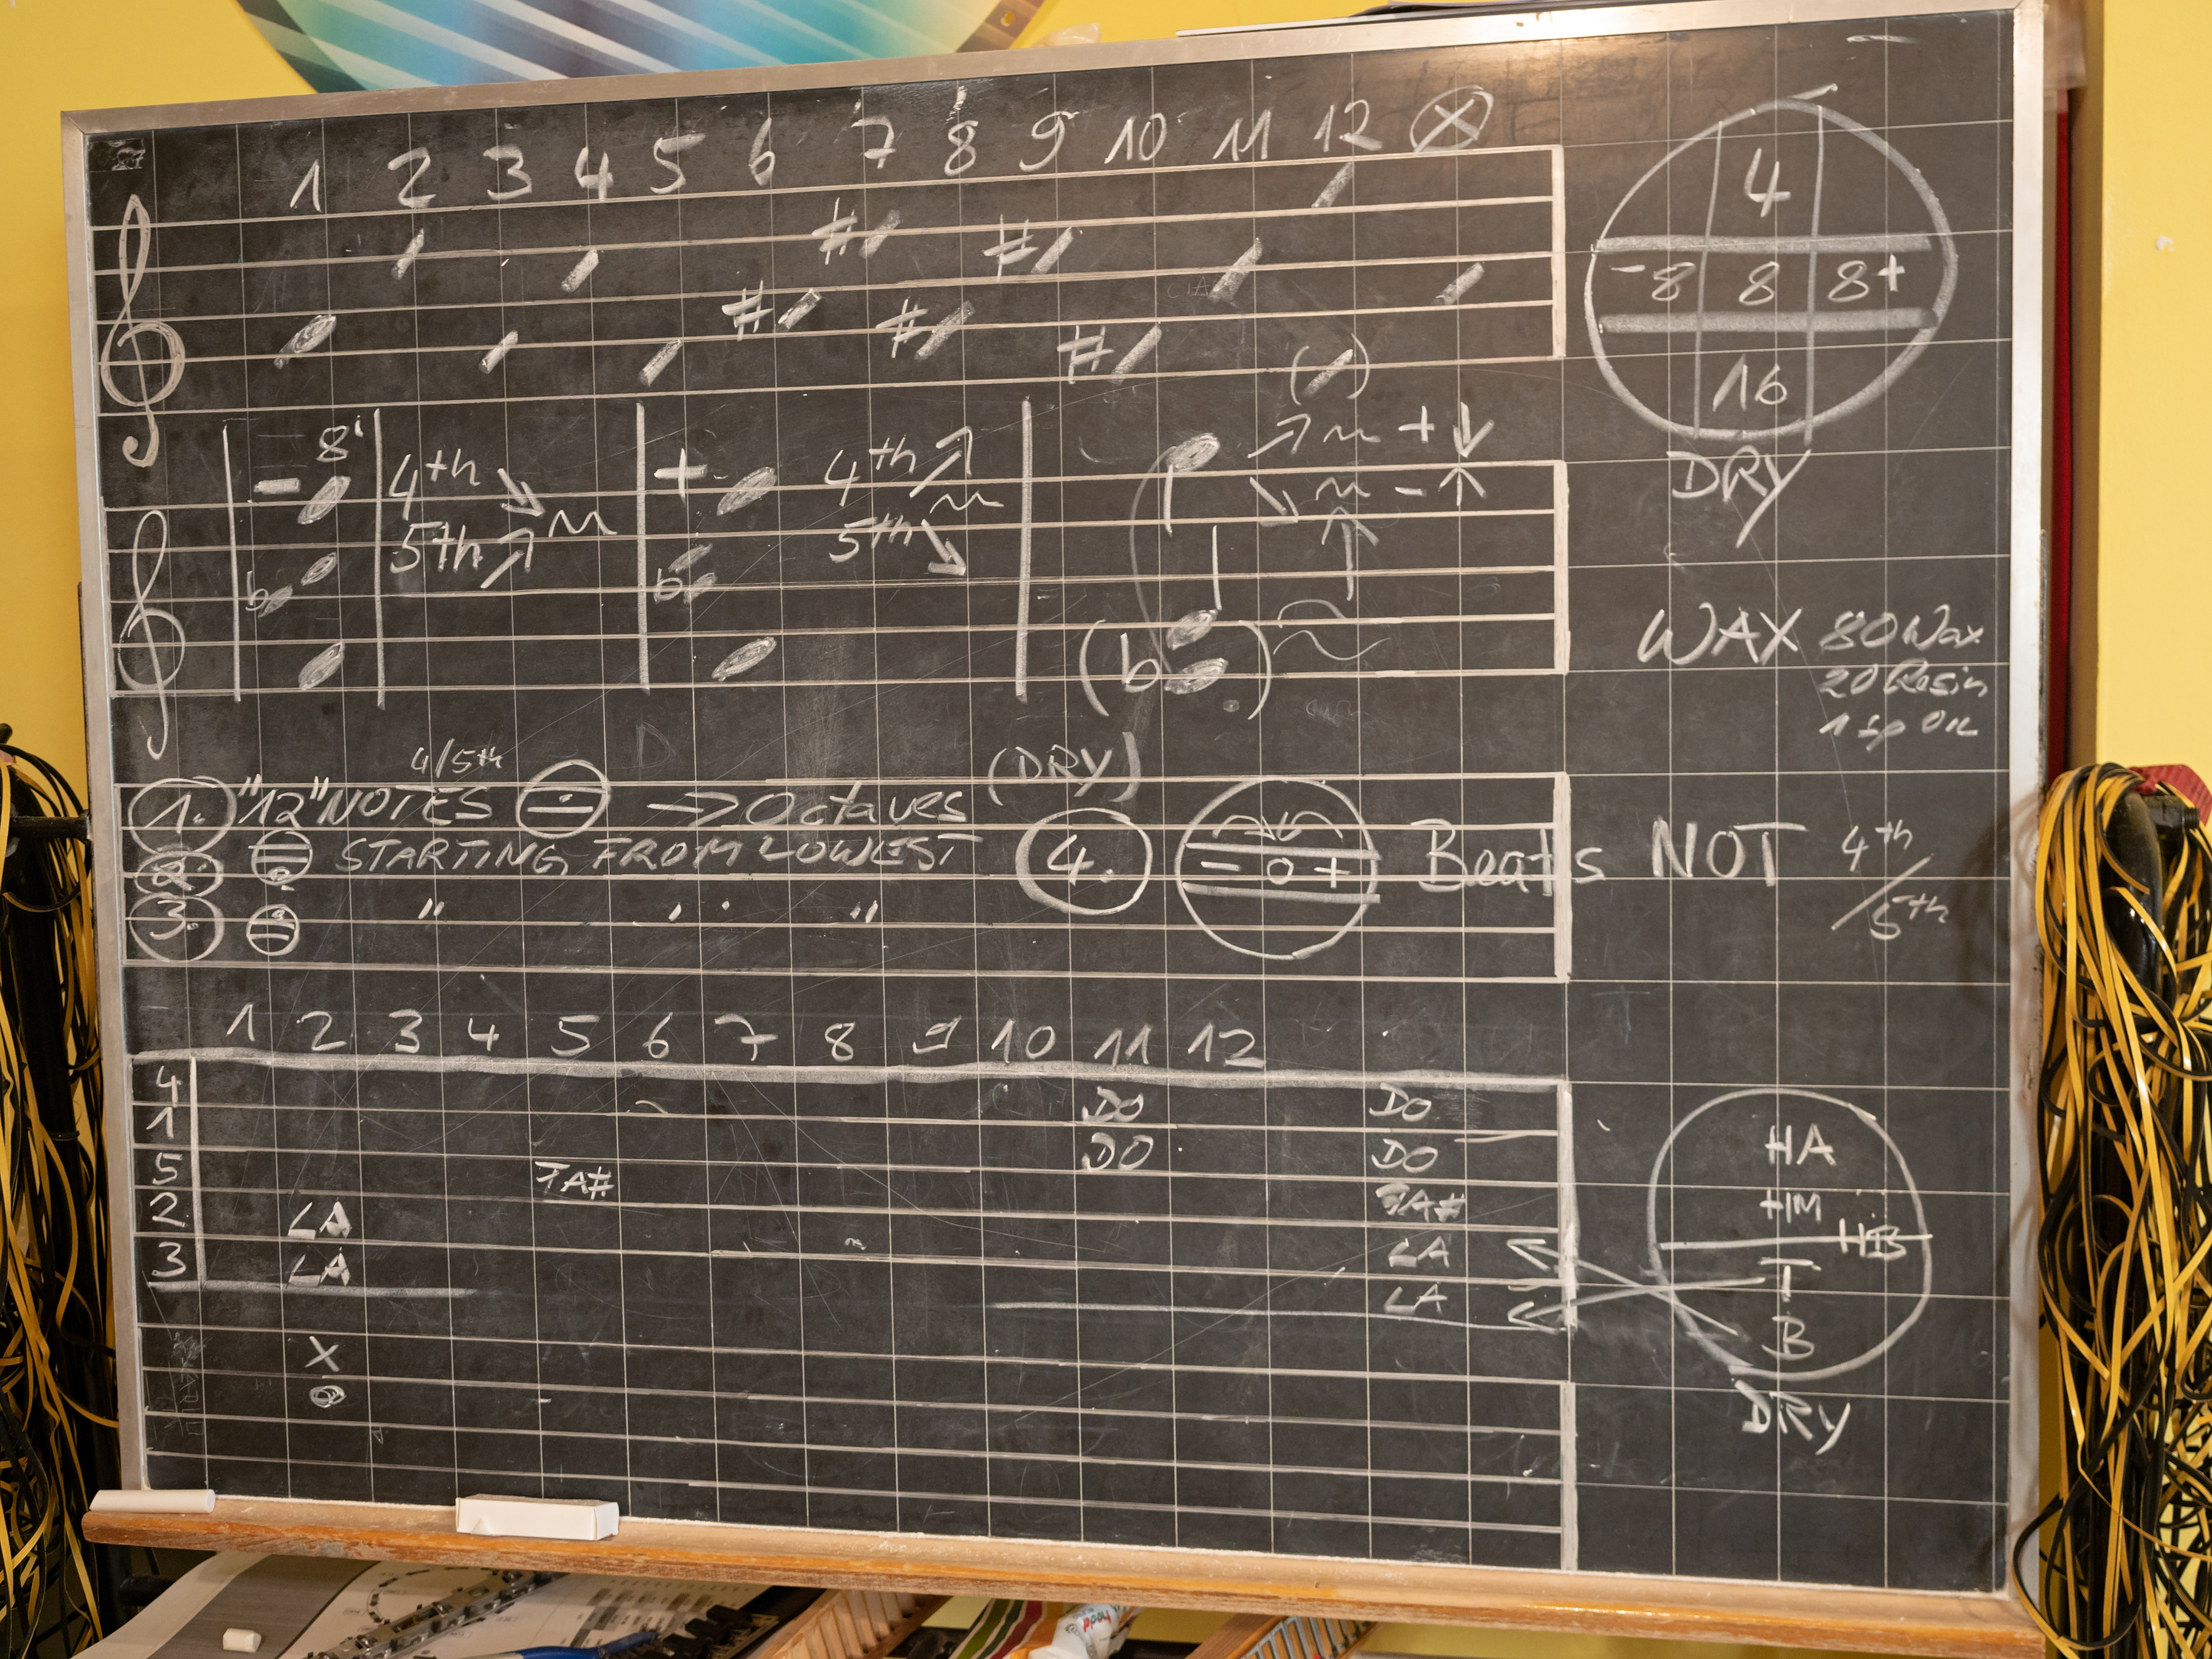 1 2 3 4 5 6 7 8 9 10 11 12 X
# # # # #
4
-8 8 8+
16
DRY
- 8' 4th + 4th + 
b 5th b 5th -
(b )
WAX 80 Wax
20 Resin
4/5th (DRY)
1. "12" NOTES → Octaves
2. STARTING FROM LOWEST
3. " " "
4. - 0 + Beats NOT 4th
/ 5th
1 2 3 4 5 6 7 8 9 10 11 12
4 DO DO
1 DO DO
5 FA# FA#
2 LA LA
3 LA LA
X
HA
HM
HB
T
B
DRY